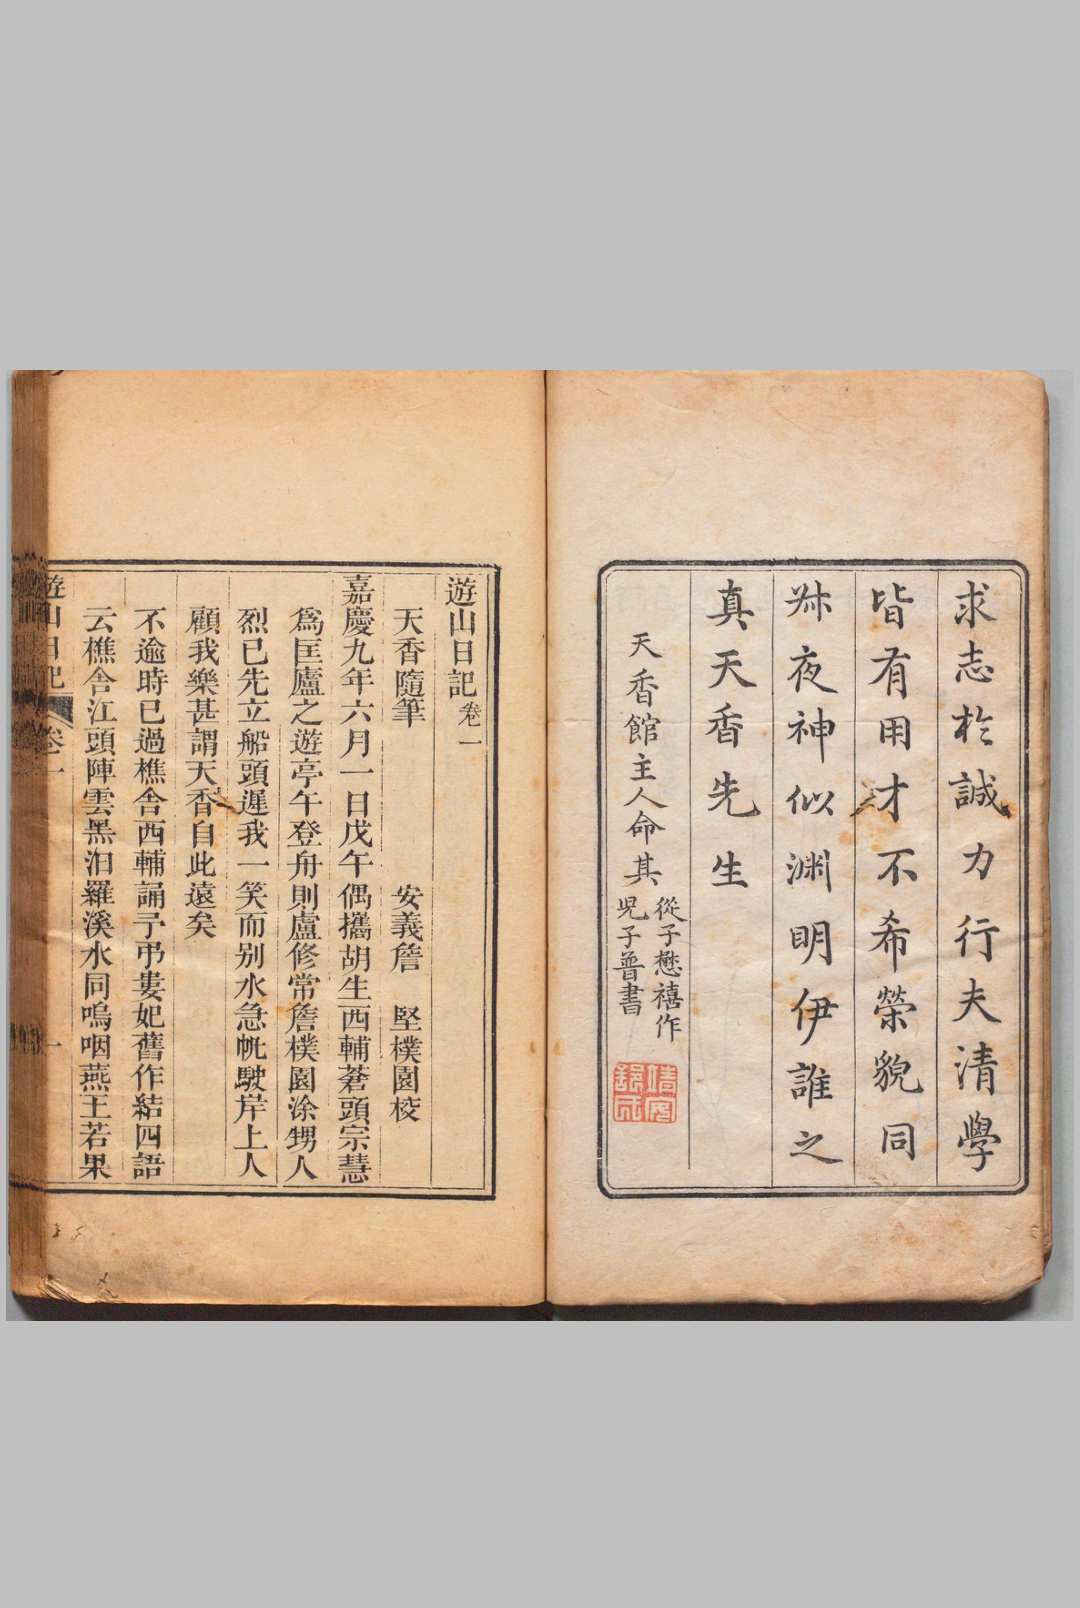 求志於誠力行夫清學
皆有用才不希榮貌同
叔夜神似渊明伊誰之
真天香先生
天香館主人命其
從子懋禧作
児子普書
遊山日記卷一
天香隨筆 安義詹 堅樸園校
嘉慶九年六月一日戊午偶攜胡生西輔蒼頭宗慧
爲匡廬之遊亭午登舟則盧修常詹樸園涂甥人
烈已先立船頭遲我一笑而别水急帆駛岸上人
顧我樂甚謂天香自此遠矣
不逾時已過樵舍西輔誦予弔婁妃舊作結四語
云樵舍江頭陣雲黑汨羅溪水同嗚咽燕王若果
遊山日記 卷一 一